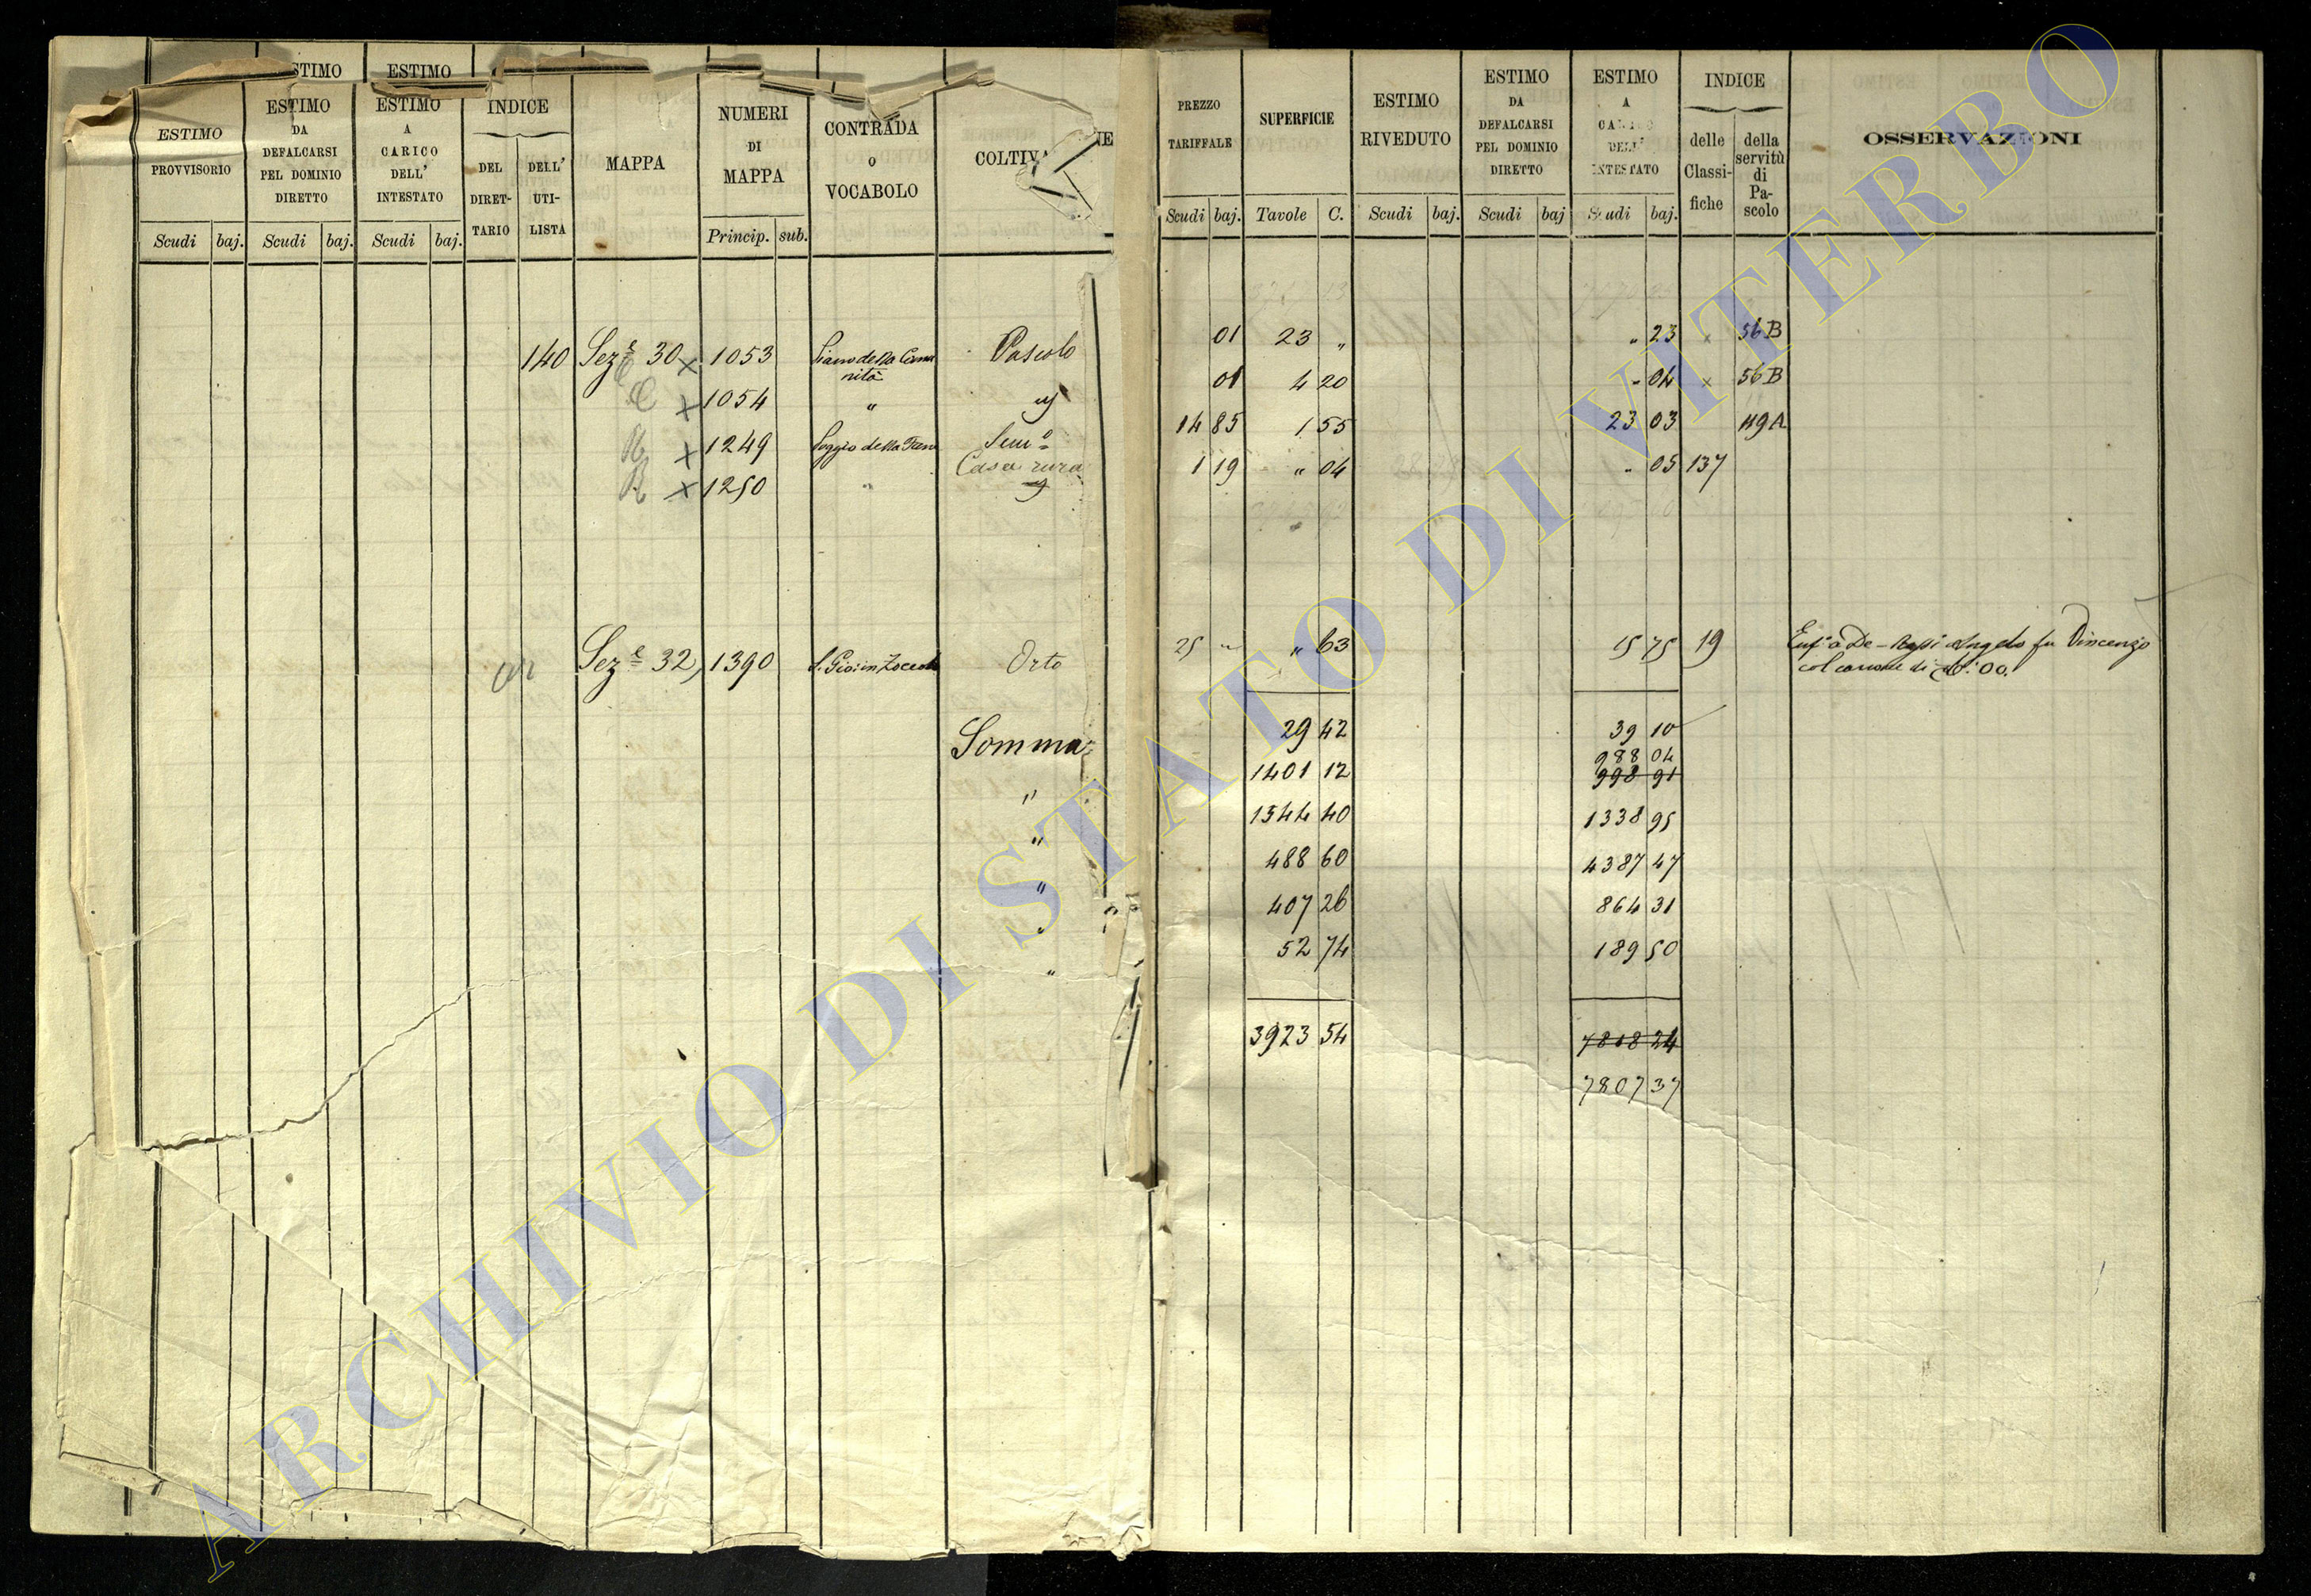 ESTIMO
PROVVISORIO
Scudi baj.
STIMO
ESTIMO
DA
DEFALCARSI
PEL DOMINIO
DIRETTO
Scudi baj.
ESTIMO
ESTIMO
A
CARICO
DELL'
INTESTATO
Scudi baj.
INDICE
DEL
DIRET-
TARIO
DELL'
UTI-
LISTA
MAPPA
NUMERI
DI
MAPPA
Princip. sub.
CONTRADA
O
VOCABOLO
COLTIVA
NE
PREZZO
TARIFFALE
Scudi baj.
SUPERFICIE
Tavole C.
ESTIMO
RIVEDUTO
Scudi baj.
ESTIMO
DA
DEFALCARSI
PEL DOMINIO
DIRETTO
Scudi baj
ESTIMO
A
CARICO
DELL'
INTESTATO
Scudi baj.
INDICE
delle
Classi-
fiche
della
servitù
di
Pa-
scolo
OSSERVAZIONI
140 Sez.e 30 x 1053 Piano della Comu Pascolo 01 23 „ „ 23 x 56 B
nità
C x 1054 „ 01 4 20 - 04 x 56 B
x 1249 Poggio della Sem.o 14 85 1 55 23 03 119 A
Casa rura
R x 1250 „ 1 19 „ 04 „ 05 137
Sez.e 32, 1390 S. Gio: in Zoccoli Orto 25 „ „ 63 15 75 19 Enf.a a De-Rossi Angelo fu Vincenzo
col canone di 00.
Somma 29 42 39 10
988 04
„ 1401 12 998 91
„ 1544 40 1338 95
„ 488 60 4387 47
„ 407 26 864 31
„ 52 74 189 50
3923 54 7818 24
7807 37
ARCHIVIO DI STATO DI VITERBO